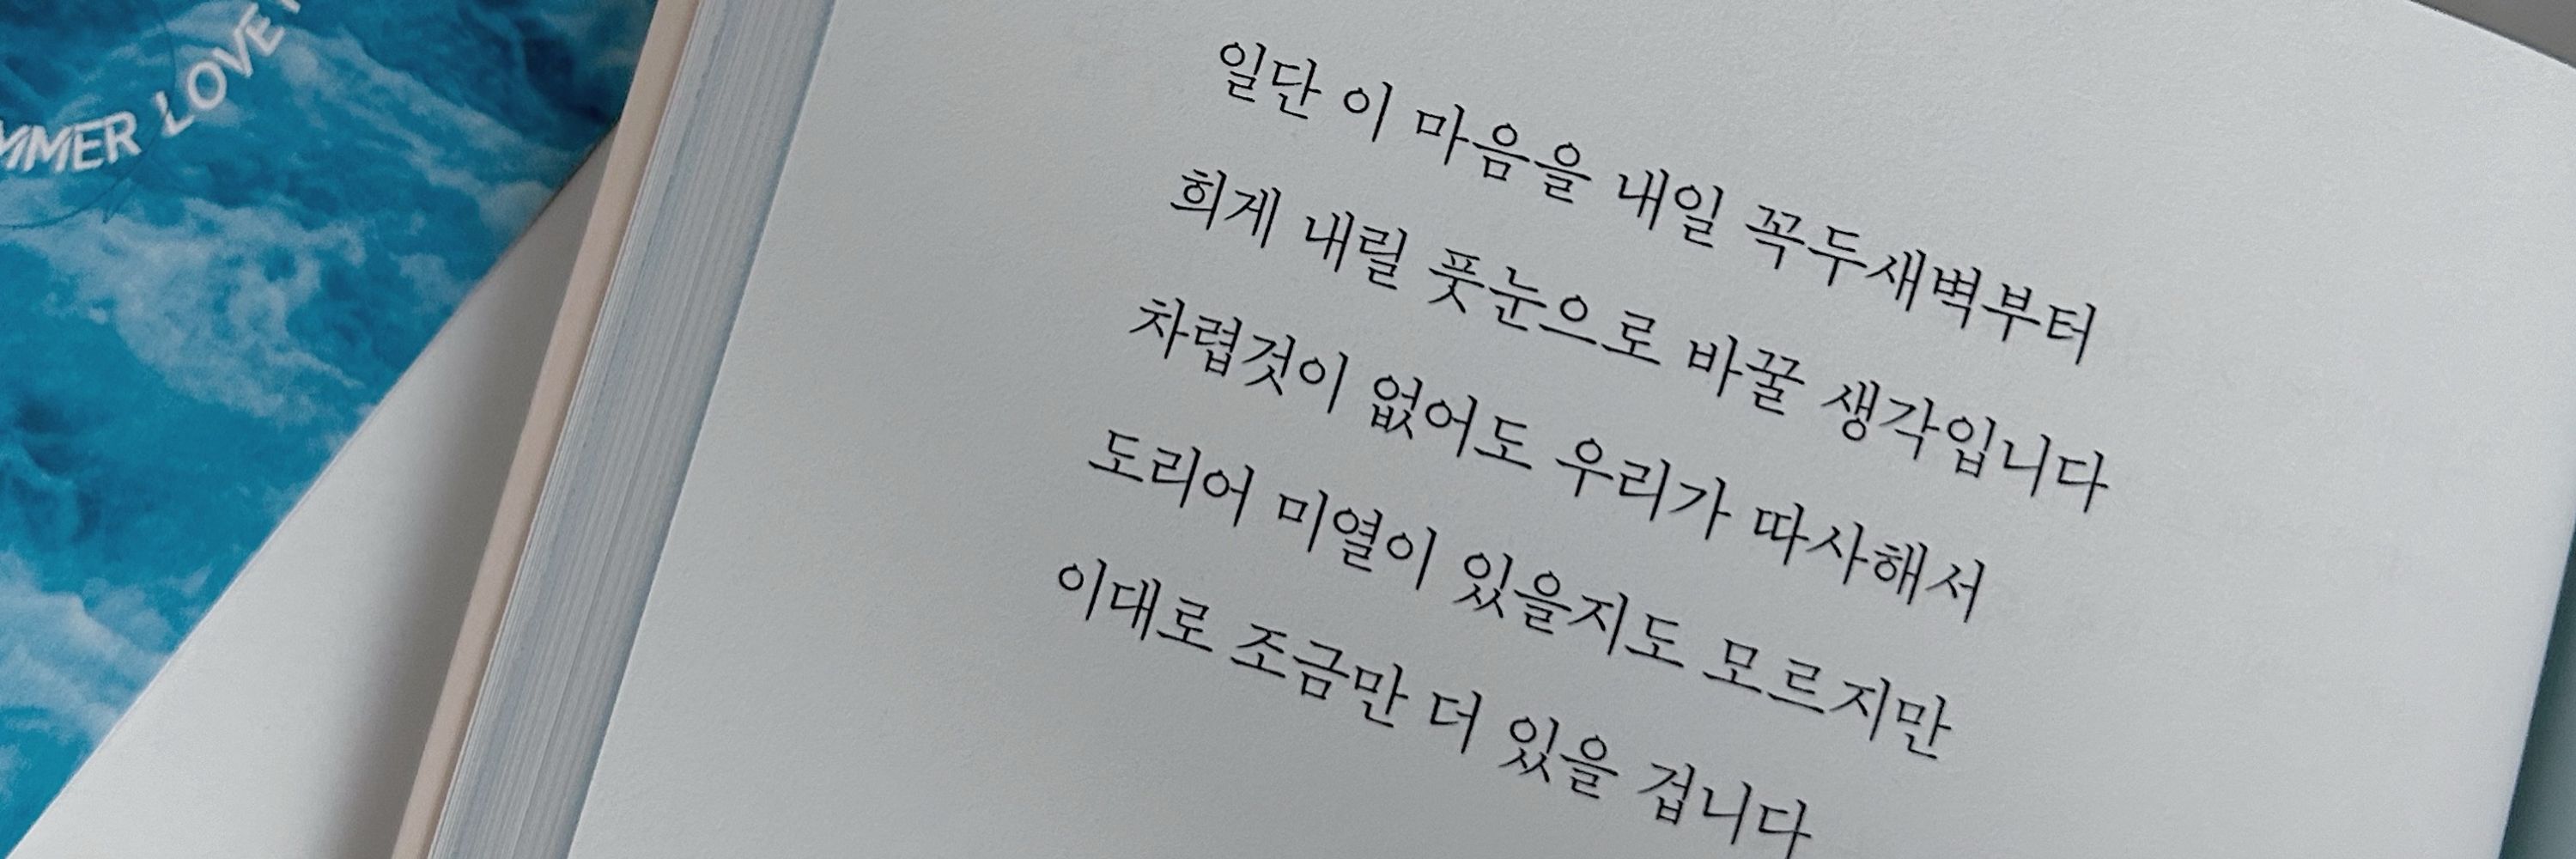 MMER LOVE
일단 이 마음을 내일 꼭두새벽부터
희게 내릴 풋눈으로 바꿀 생각입니다
차렵것이 없어도 우리가 따사해서
도리어 미열이 있을지도 모르지만
이대로 조금만 더 있을 겁니다